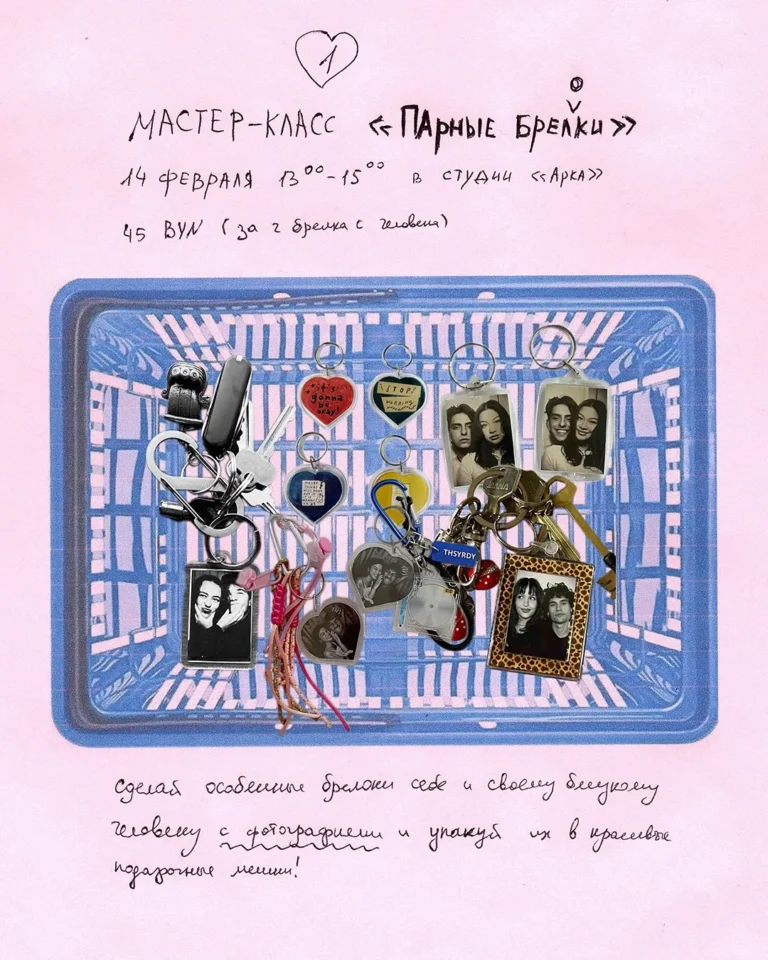 1
МАСТЕР-КЛАСС «ПАРНЫЕ БРЕЛКИ»
О
14 ФЕВРАЛЯ 13⁰⁰-15⁰⁰ в СТУДИИ «АРКА»
45 BYN (за 2 брелка с человека)
it's
gonna
be
okay!
STOP!
THSYRDY
Сделай особенные брелоки себе и своему близкому
человеку с фотографиями и упакуй их в красивые
подарочные мешки!